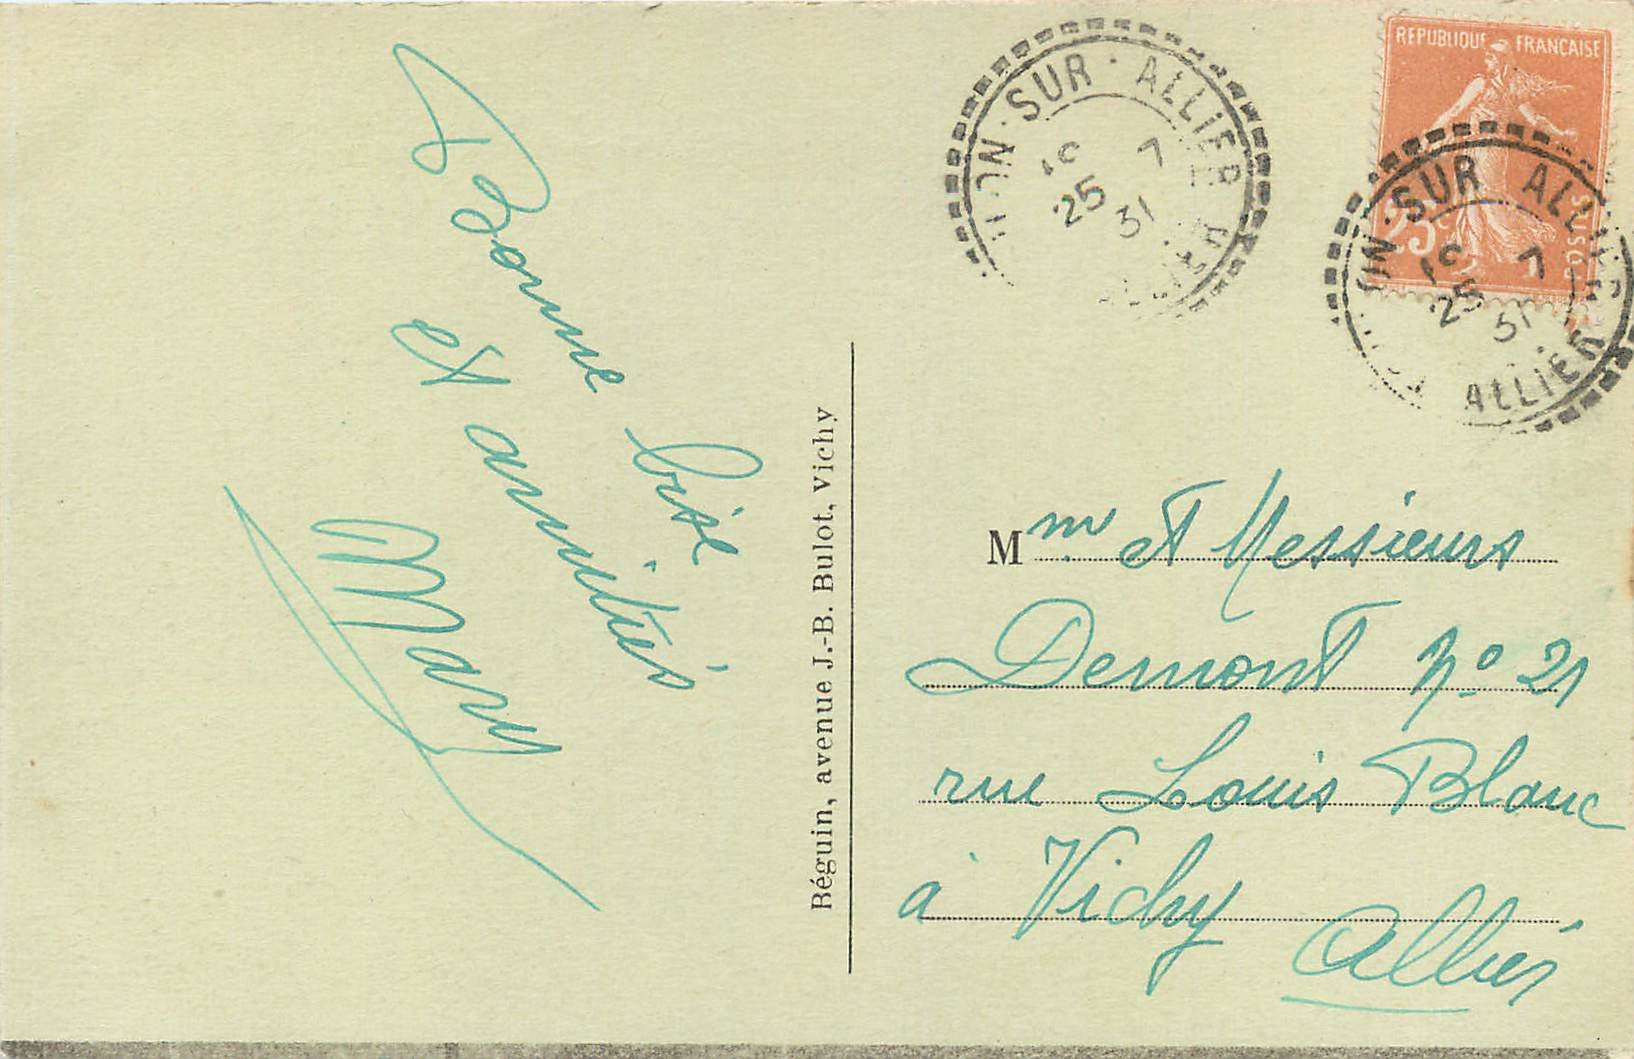 Bonne bise
et amitiés
Mary
Béguin, avenue J.-B. Bulot, Vichy
REPUBLIQUE FRANÇAISE
25c
POSTES
SUR · ALLIER
25 7
31
ALLIER
SUR ALLIER
25 7
31
ALLIER
Mme et Messieurs
Demont No 21
rue Louis Blanc
à Vichy
Allier